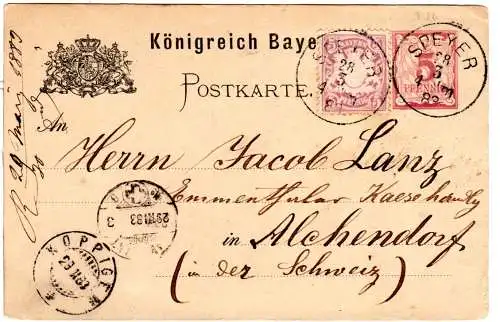 Königreich Baye
POSTKARTE.
SPEYER
28
3
4
SPEYER
28
3
4
83
5
PFENNIG
R 29 März 1883
An
Herrn Jacob Lanz
Emmenthaler Kaesehandlg
in Alchendorf
(in der Schweiz)
29 III 83
3
KOPPIGEN